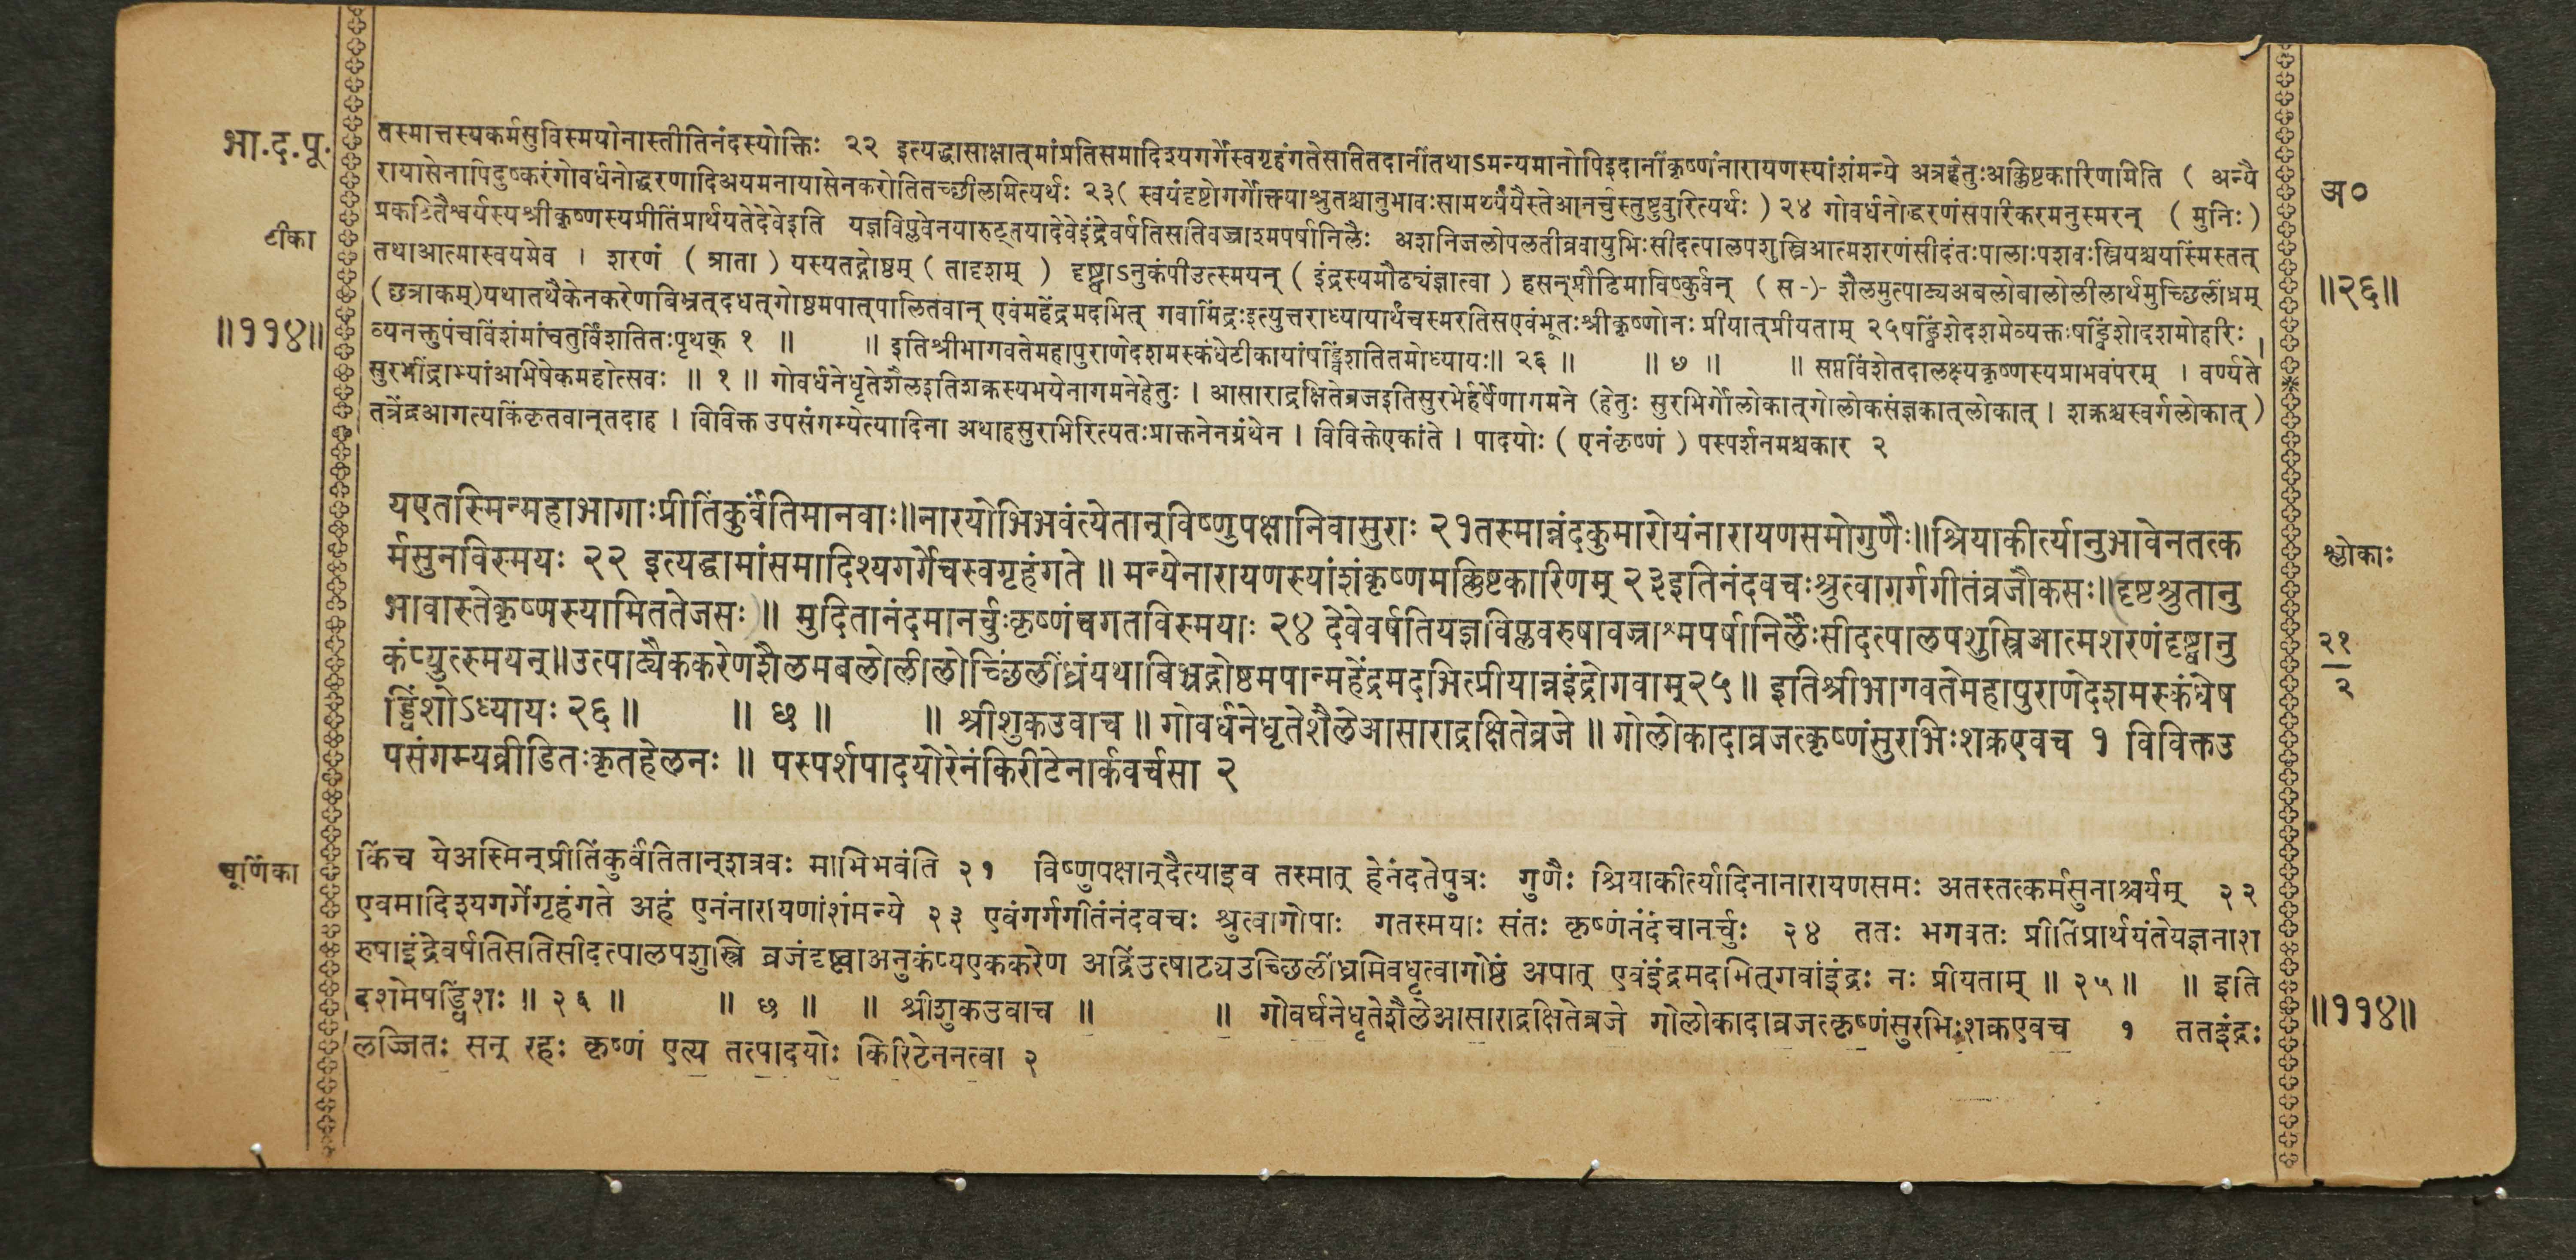 भा.द.पू.
टीका
॥११४॥
तस्मात्तस्यकर्मसुविस्मयोनास्तीतिनंदस्योक्तिः २२ इत्यद्धासाक्षात्‌मांप्रतिसमादिश्यगर्गेस्वगृहंगतेसतितदानींतथाऽमन्यमानोपिइदानींकृष्णंनारायणस्यांशंमन्ये अत्रहेतुःअक्लिष्टकारिणमिति ( अन्यै
रायासेनापिदुष्करंगोवर्धनोद्धरणादिअयमनायासेनकरोतितच्छीलमित्यर्थः २३( स्वयंदृष्टोगर्गोक्त्याश्रुतश्चानुभावःसामर्थ्यंयैस्तेआनर्चुस्तुष्टुवुरित्यर्थः ) २४ गोवर्धनोद्धरणंसपरिकरमनुस्मरन् ( मुनिः )
प्रकटितैश्वर्यस्यश्रीकृष्णस्यप्रीतिंप्रार्थयतेदेवेइति यज्ञविप्लवेनयारुट्‌तयादेवेइंद्रेवर्षतिसतिवज्राश्मपर्षानिलैः अशनिजलोपलतीव्रवायुभिःसीदत्पालपशुस्त्रिआत्मशरणंसीदंतःपालाःपशवःस्त्रियश्चयस्मिंस्तत्
तथाआत्मास्वयमेव । शरणं ( त्राता ) यस्यतद्गोष्ठम् ( तादृशम् ) दृष्ट्वाऽनुकंपीउत्स्मयन् ( इंद्रस्यमौढ्यंज्ञात्वा ) हसन्‌प्रौढिमाविष्कुर्वन् ( स -)- शैलमुत्पाट्यअबलोबालोलीलार्थमुच्छिलींध्रम्
(छत्राकम्)यथातथैकेनकरेणबिभ्रत्‌दधत्‌गोष्ठमपात्‌पालितवान् एवंमहेंद्रमदभित् गवामिंद्रःइत्युत्तराध्यायार्थंचस्मरतिसएवंभूतःश्रीकृष्णोनः प्रीयात्‌प्रीयताम् २५षड्विंशेदशमेव्यक्तःषड्विंशोदशमोहरिः ।
व्यनक्तुपंचविंशंमांचतुर्विंशतितःपृथक् १ ॥ ॥ इतिश्रीभागवतेमहापुराणेदशमस्कंधेटीकायांषड्विंशतितमोध्यायः॥ २६ ॥ ॥ ७ ॥ ॥ सप्तविंशेतदालक्ष्यकृष्णस्यप्राभवंपरम् । वर्ण्यते
सुरभींद्राभ्यांआभिषेकमहोत्सवः ॥ १ ॥ गोवर्धनेधृतेशैलइतिशक्रस्यभयेनागमनेहेतुः । आसाराद्रक्षितेव्रजइतिसुरभेर्हर्षेणागमने (हेतुः सुरभिर्गोलोकात्‌गोलोकसंज्ञकात्‌लोकात् । शक्रश्चस्वर्गलोकात् )
तत्रेंद्रआगत्यकिंकृतवान्‌तदाह । विविक्त उपसंगम्येत्यादिना अथाहसुराभिरित्यतःप्राक्तनेनग्रंथेन । विविक्तेएकांते । पादयोः ( एनंकृष्णं ) पस्पर्शनमश्चकार २
यएतस्मिन्महाभागाःप्रीतिंकुर्वंतिमानवाः॥नारयोभिभवंत्येतान्‌विष्णुपक्षानिवासुराः २१तस्मान्नंदकुमारोयंनारायणसमोगुणैः॥श्रियाकीर्त्यानुभावेनतत्क
र्मसुनविस्मयः २२ इत्यद्धामांसमादिश्यगर्गेचस्वगृहंगते ॥ मन्येनारायणस्यांशंकृष्णमक्लिष्टकारिणम् २३इतिनंदवचःश्रुत्वागर्गगीतंव्रजौकसः॥(दृष्टश्रुतानु
भावास्तेकृष्णस्यामिततेजसः) ॥ मुदितानंदमानर्चुःकृष्णंचगतविस्मयाः २४ देवेवर्षतियज्ञविप्लवरुषावज्राश्मपर्षानिलैःसीदत्पालपशुस्त्रिआत्मशरणंदृष्ट्वानु
कंप्युत्स्मयन्॥उत्पाट्यैककरेणशैलमबलोलीलोच्छिलींध्रंयथाबिभ्रद्गोष्ठमपान्महेंद्रमदभित्प्रीयान्नइंद्रोगवाम्२५॥ इतिश्रीभागवतेमहापुराणेदशमस्कंधेष
ड्विंशोऽध्यायः २६ ॥ ॥ ७ ॥ ॥ श्रीशुकउवाच ॥ गोवर्धनेधृतेशैलेआसाराद्रक्षितेव्रजे ॥ गोलोकादाव्रजत्कृष्णंसुरभिःशक्रएवच १ विविक्तउ
पसंगम्यव्रीडितःकृतहेलनः ॥ पस्पर्शपादयोरेनंकिरीटेनार्कवर्चसा २
चूर्णिका
किंच येअस्मिन्‌प्रीतिंकुर्वंतितान्‌शत्रवः माभिभवंति २१ विष्णुपक्षान्‌दैत्याइव तस्मात् हेनंदतेपुत्रः गुणैः श्रियाकीर्त्यादिनानारायणसमः अतस्तत्कर्मसुनाश्चर्यम् २२
एवमादिश्यगर्गेगृहंगते अहं एनंनारायणांशंमन्ये २३ एवंगर्गगीतंनंदवचः श्रुत्वागोपाः गतस्मयाः संतः कृष्णंनंदंचानर्चुः २४ ततः भगवतः प्रीतिंप्रार्थयंतेयज्ञनाश
रुषाइंद्रेवर्षतिसतिसीदत्पालपशुस्त्रि व्रजंदृष्ट्वाअनुकंप्यएककरेण अद्रिंउत्पाट्यउच्छिलींध्रमिवधृत्वागोष्ठं अपात् एवंइंद्रमदभित्‌गवांइंद्रः नः प्रीयताम् ॥ २५ ॥ ॥ इति
दशमेषड्विंशः ॥ २६ ॥ ॥ छ ॥ ॥ श्रीशुकउवाच ॥ ॥ गोवर्धनेधृतेशैलेआसाराद्रक्षितेव्रजे गोलोकादाव्रजत्कृष्णंसुरभिःशक्रएवच १ ततइंद्रः
लज्जितः सन् रहः कृष्णं एत्य तत्पादयोः किरिटेननत्वा २
अ०
॥२६॥
श्लोकाः
२१
२
॥११४॥